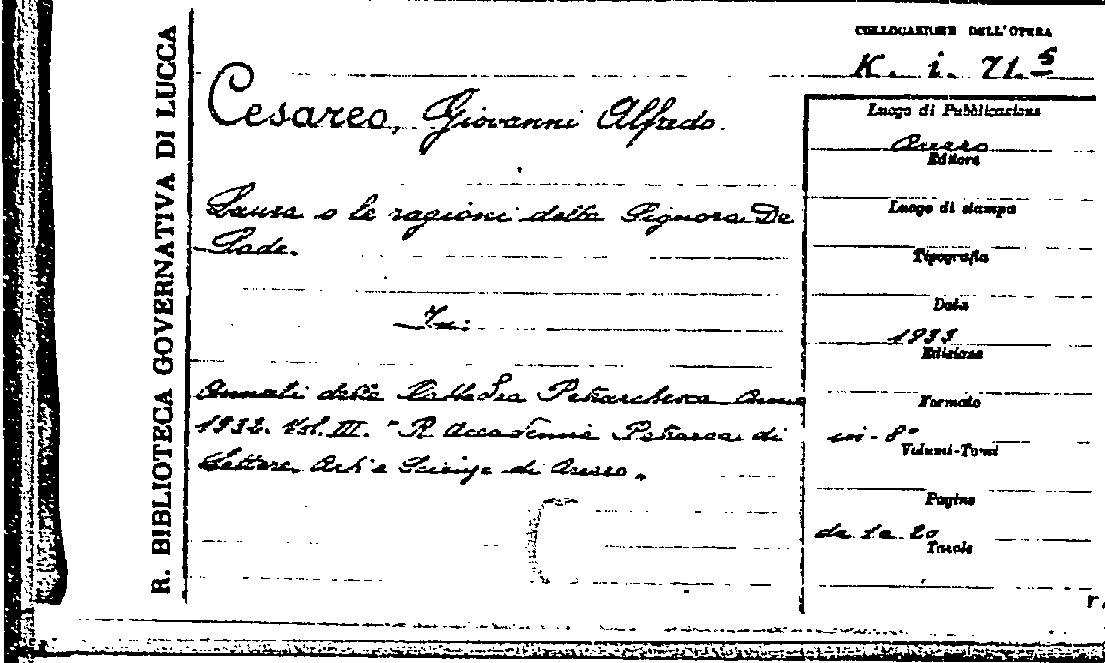 R. BIBLIOTECA GOVERNATIVA DI LUCCA
COLLOCAZIONE DELL'OPERA
K. i. 71.5
Cesareo, Giovanni Alfredo.
Laura o le ragioni della Signora De
Sade.
In:
Annali della Cattedra Petrarchesca Anno
1932. Vol. III. "R Accademia Petrarca di
Lettere, Arti e Scienze di Arezzo.„
Luogo di Pubblicazione
Arezzo
Editore
Luogo di stampa
Tipografia
Data
1933
Edizione
Formato
in-8°
Volumi-Tomi
Pagine
da 1 a 20
Tavole